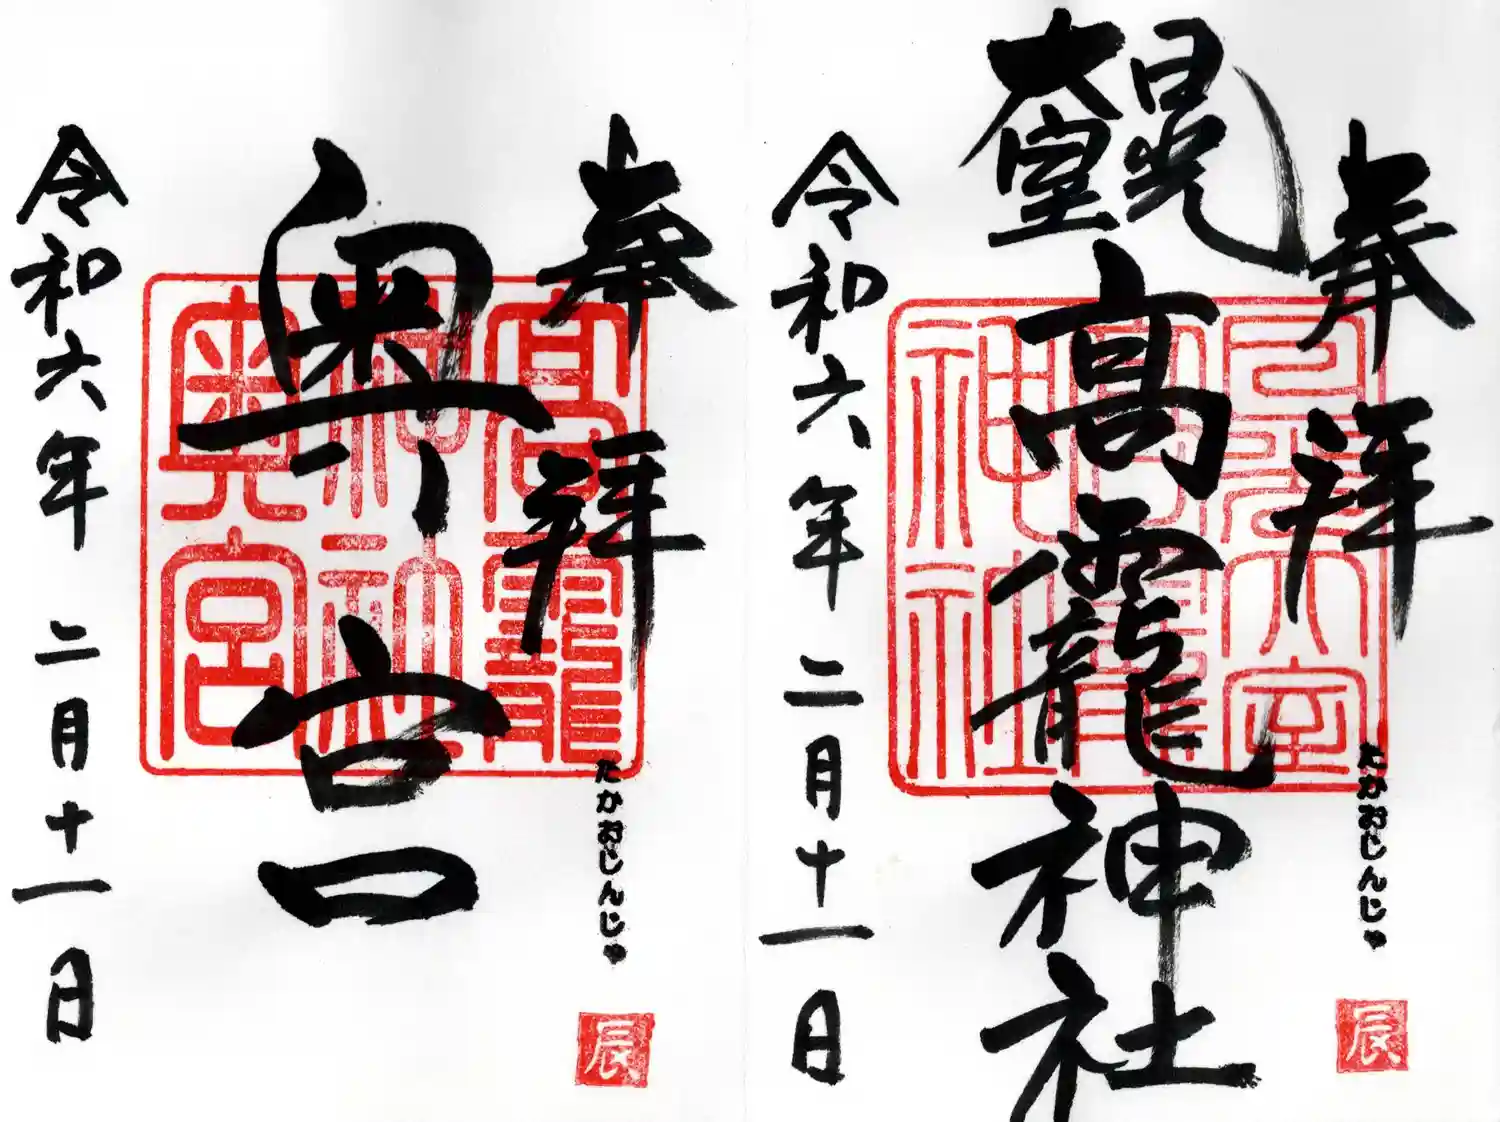 奉拝
日光
大室
高龗神社
令和六年二月十一日
日光大室
高龗
神社
たかおじんじゃ
辰
奉拝
奥宮
令和六年二月十一日
高龗
神社
奥宮
たかおじんじゃ
辰